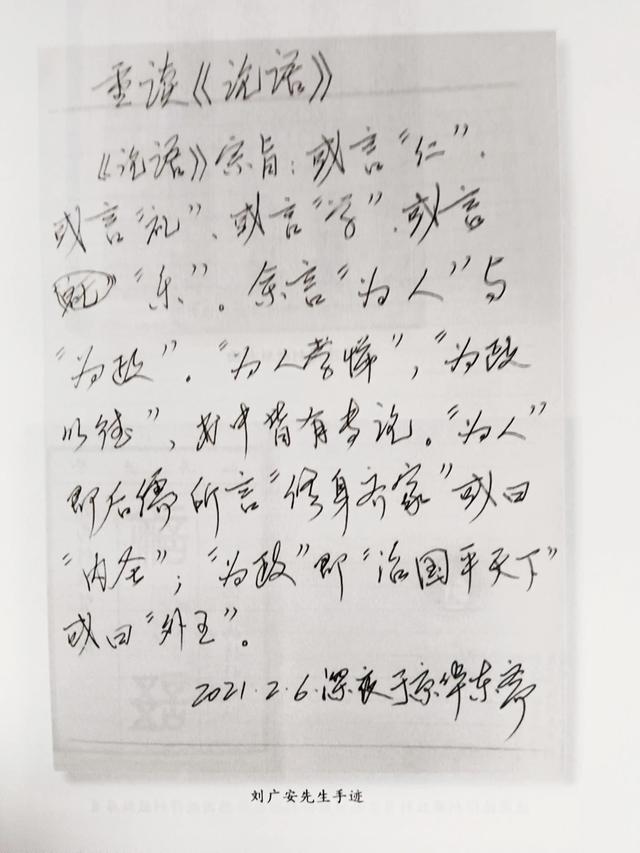 重读《论语》
《论语》宗旨：或言“仁”、
或言“礼”、或言“学”、或言
“乐”。余言“为人”与
“为政”。“为人孝悌”，“为政
以德”，书中皆有专论。“为人”
即后儒所言“修身齐家”或曰
“内圣”；“为政”即“治国平天下”
或曰“外王”。
2021.2.6.深夜于京华东斋
刘广安先生手迹